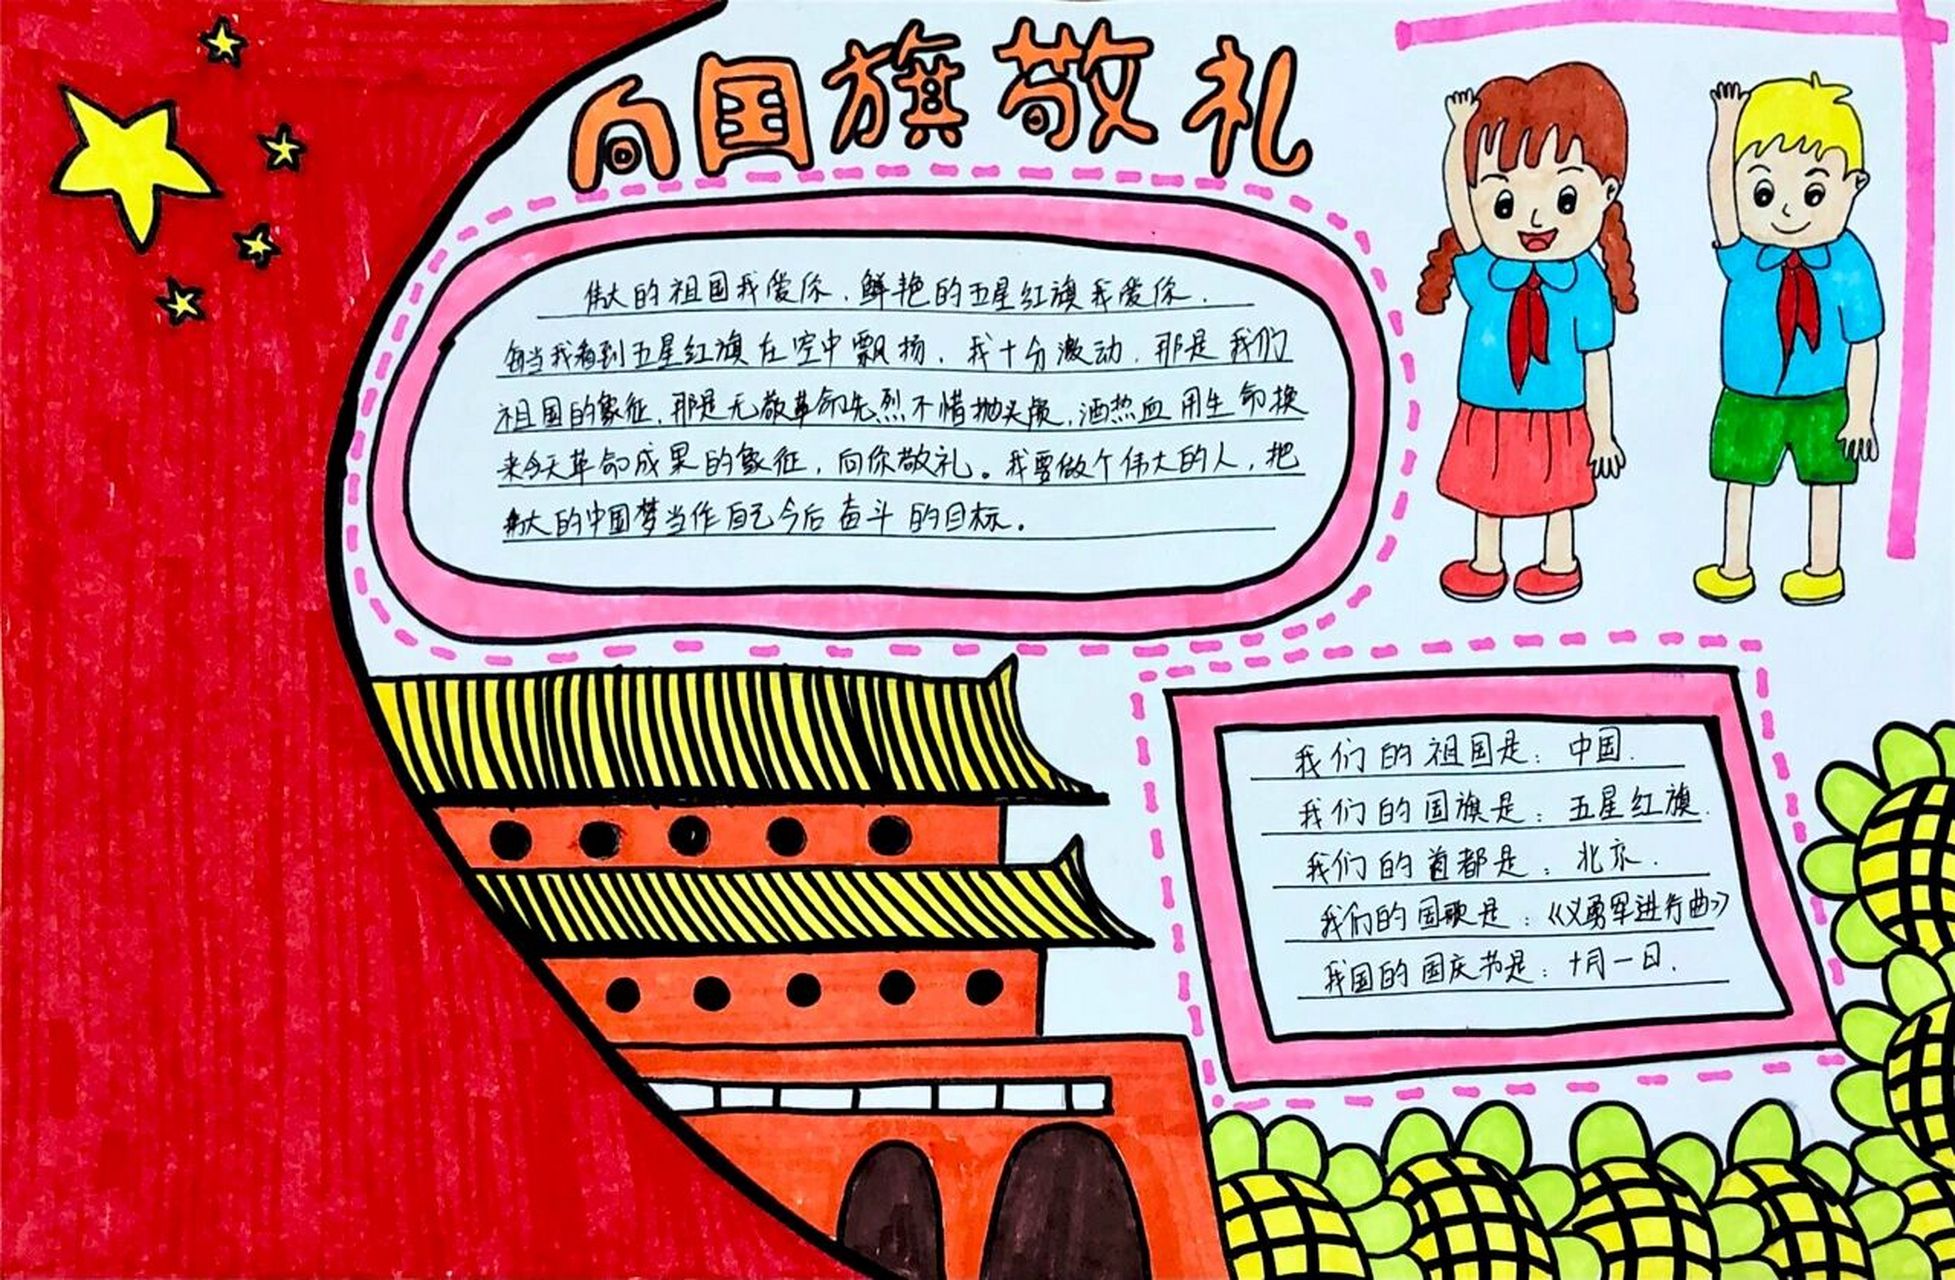 向国旗敬礼
伟大的祖国我爱你，鲜艳的五星红旗我爱你．
每当我看到五星红旗在空中飘扬，我十分激动，那是我们
祖国的象征，那是无敌革命先烈不惜抛头颅，洒热血用生命换
来今天革命成果的象征，向你敬礼。我要做个伟大的人，把
伟大的中国梦当作自己今后奋斗的目标。
我们的祖国是：中国．
我们的国旗是：五星红旗．
我们的首都是：北京．
我们的国歌是：《义勇军进行曲》
我国的国庆节是：十月一日．